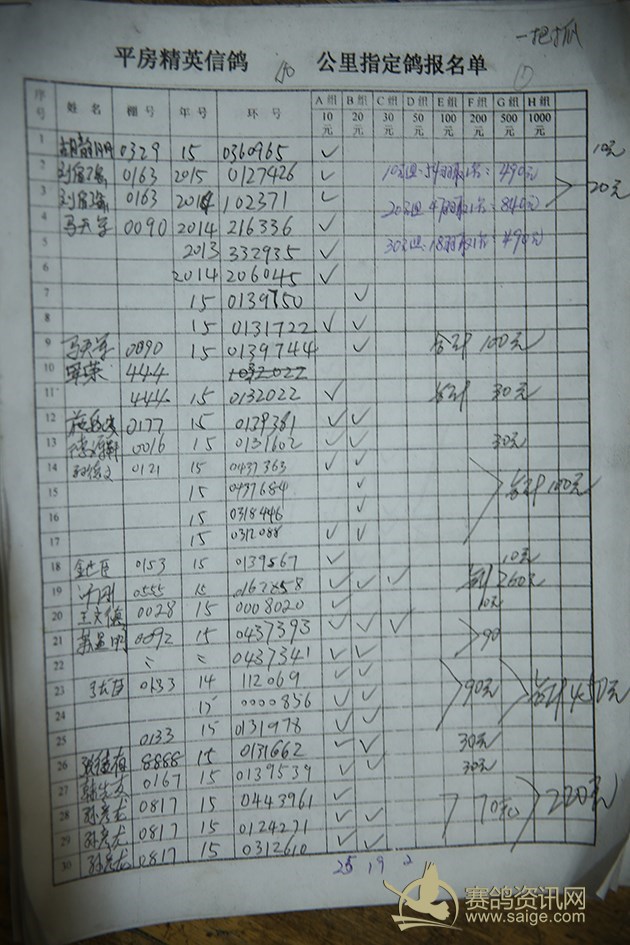 平房精英信鸽 公里指定鸽报名单
序号 姓名 棚号 年号 环号 A组10元 B组20元 C组30元 D组50元 E组100元 F组200元 G组500元 H组1000元
1 0329 15 0360965 ✓ 10元
2 0163 2015 0127426 ✓ 10元组:54羽取1名:490元
3 0163 2014 102371 ✓ 20元
20元组:47羽取1名:840元
4 马天学 0090 2014 216336 ✓
5 2013 332935 ✓ 30元组:18羽取1名:490元
6 2014 206045 ✓
7 15 0139750 ✓
8 15 0131722 ✓ ✓
9 马天学 0090 15 0139744 ✓ 合计 100元
10 444
11 444 15 0132022 ✓ 合计 30元
12 0177 15 0139381 ✓ ✓
13 0016 15 0131602 ✓ ✓ 30元
14 0121 15 0437363 ✓ ✓
15 15 0437684 ✓ 合计 100元
16 15 0318446 ✓
17 15 0312088 ✓ ✓
18 0153 15 0139567 ✓ 10元
19 0555 15 0162858 ✓ ✓ ✓ 260元
20 0028 15 0008020 ✓ 10元
21 0092 15 0437393 ✓ ✓ ✓ 90
22 0437341 ✓ ✓
23 0133 14 112069 ✓ ✓ 90元 合计450元
24 15 0000856 ✓ ✓
25 0133 15 0131978 ✓ ✓
26 8888 15 0131662 ✓ ✓ 30元
27 0167 15 0139539 ✓ ✓ 30元
28 孙彦龙 0817 15 0443961 ✓ 70元 220元
29 孙彦龙 0817 15 0124271 ✓ ✓
30 孙彦龙 0817 15 0312610 ✓ ✓
25 19 2
赛鸽资讯网
www.saige.com